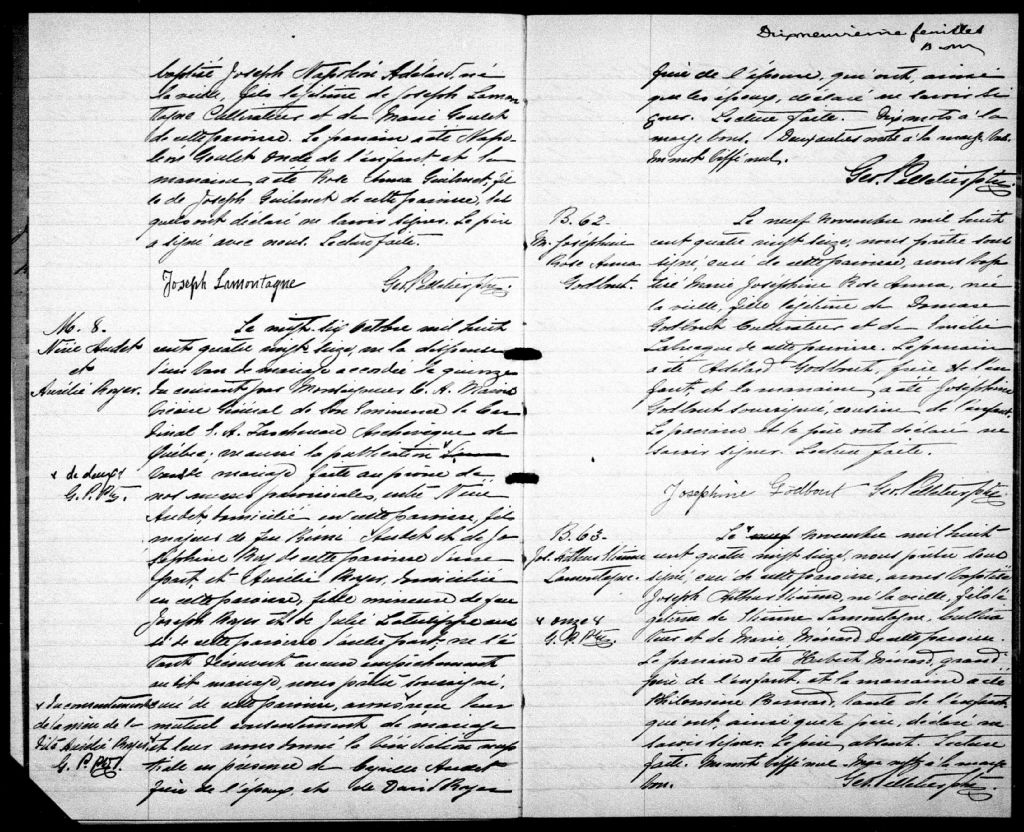 baptisé Joseph Napoléon Adélard, né
la veille, fils légitime de Joseph Lamon
tagne Cultivateur et de Marie Goulet
de cette paroisse. Le parrain a été Napo
léon Goulet oncle de l'enfant et la
marraine a été Rose Anna Guilmet, fil
le de Joseph Guilmet de cette paroisse, les
quels ont déclaré ne savoir signer. Le père
a signé avec nous. Lecture faite.
Joseph Lamontagne Geo. Pelletier ptre.
M. 8.
et
Aurélie Royer.
Le vingt six octobre mil huit
cent quatre vingt seize, vu la dispense
d'un ban de mariage accordée le quinze
du courant par Monseigneur C. A. Marois
Vicaire Général de Son Eminence le Car
dinal E. A. Taschereau Archevêque de
Québec, vu aussi la publication
de mariage faite au prône de
nos messes paroissiales, entre
Audet, domicilié en cette paroisse, fils
majeur de feu Audet et de Jo
séphine de cette paroisse d'une
part et Aurélie Royer, domiciliée
en cette paroisse, fille mineure de feu
Joseph Royer et de Julie Latulippe aus
si de cette paroisse d'autre part; ne s'é
tant découvert aucun empêchement
au dit mariage, nous prêtre soussigné,
curé de cette paroisse, avons reçu leur
mutuel consentement de mariage
et leur avons donné la bénédiction nup
tiale en présence de Cyrille Audet
frère de l'époux, et de David Royer
x de deux x
G. P. Ptre.
x du consentement
de la mère de la
dite Aurélie Royer x
G. P. Ptre.
Dixneuvieme feuillet
frère de l'épouse, qui ont, ainsi
que les époux, déclaré ne savoir si
gner. Lecture faite. Dix mots à la
marge bons. Deux autres mots à la marge bons.
Un mot biffé nul.
Geo. Pelletier ptre.
B. 62.
M. Joséphine
Rose Anna
Godbout.
Le neuf Novembre mil huit
cent quatre vingt seize, nous prêtre sous
signé, curé de cette paroisse, avons bap
tisé Marie Joséphine Rose Anna, née
la veille, fille légitime de Damase
Godbout Cultivateur et de Emélie
Labrecque de cette paroisse. Le parrain
a été Adélard Godbout, frère de l'en
fant, et la marraine a été Joséphine
Godbout soussignée, cousine de l'enfant.
Le parrain et le père ont déclaré ne
savoir signer. Lecture faite.
Josephine Godbout Geo. Pelletier ptre.
B. 63.
Jos. Arthur Etienne
Lamontagne.
x onze x
G. P. Ptre.
Le neuf novembre mil huit
cent quatre vingt seize, nous prêtre sous
signé, curé de cette paroisse, avons baptisé
Joseph Arthur Etienne, né la veille, fils lé
gitime de Etienne Lamontagne, Cultiva
teur et de Marie Ménard de cette paroisse.
Le parrain a été Hubert Ménard, grand
père de l'enfant, et la marraine a été
Philomène tante de l'enfant,
qui ont, ainsi que le père, déclaré ne
savoir signer. Le père absent. Lecture
faite. Un mot biffé nul. à la marge
bon. Geo. Pelletier ptre.